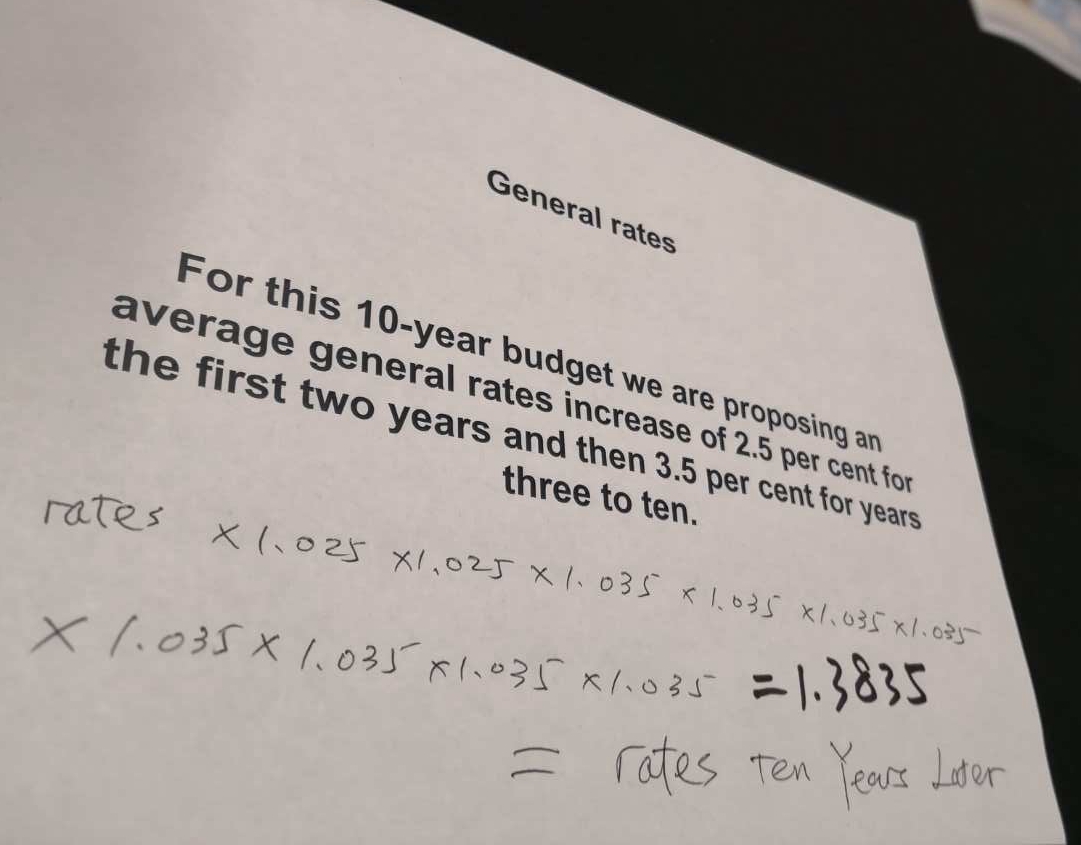 General rates
For this 10-year budget we are proposing an
average general rates increase of 2.5 per cent for
the first two years and then 3.5 per cent for years
three to ten.
rates x 1.025 x1.025 x 1.035 x 1.035 x1.035 x1.035
x 1.035 x 1.035 x1.035 x1.035 =1.3835
= rates Ten Years Later